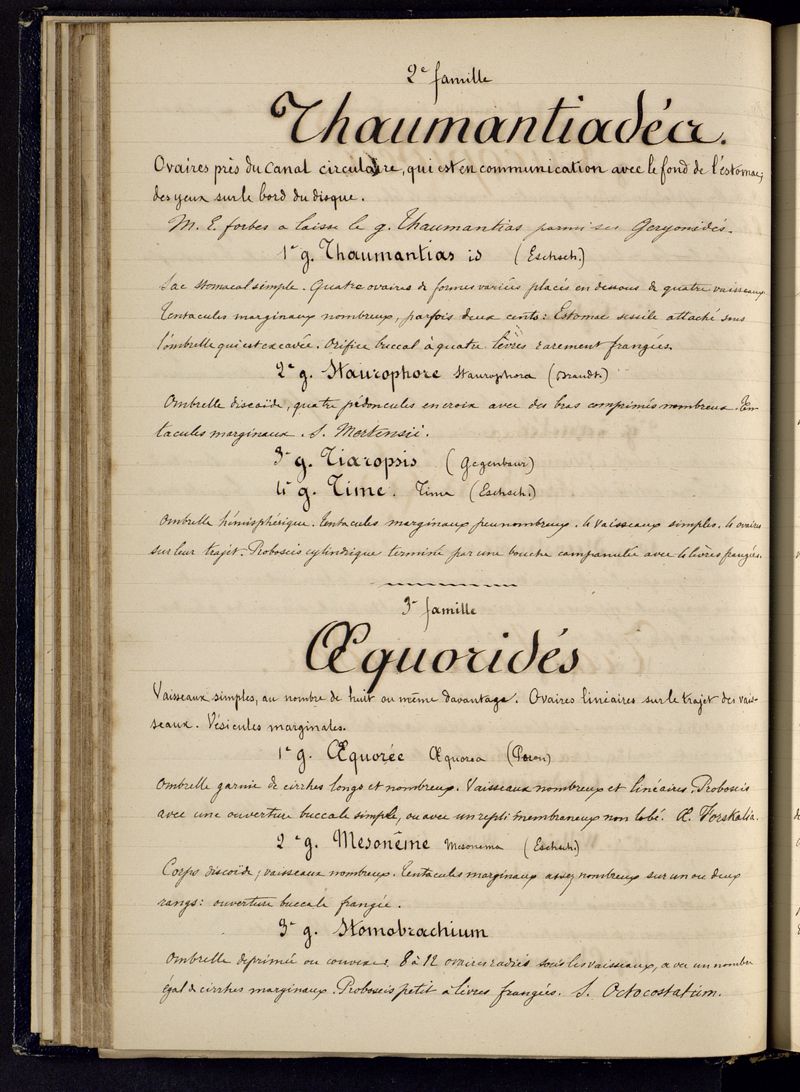 2e famille
Thaumantiadéæ.
Ovaires près du Canal circulaire, qui est en communication avec le fond de l'estomac;
des yeux sur le bord du disque.
M. E. forbes a laissé le g. Thaumantias parmi ses Geryonidés.
1r g. Thaumantias is (Eschsch.)
Sac stomacal simple. Quatre ovaires de formes variées placés en dessous de quatre vaisseaux
Tentacules marginaux nombreux, parfois deux cents: Estomac sessile attaché sous
l'ombrelle qui est excavée. Orifice buccal à quatre lèvres rarement frangées.
2e g. Staurophore Staurophora (Brandt.)
Ombrelle discoïde, quatre pédoncules en croix avec des bras comprimés nombreux. Ten-
tacules marginaux. S. Mertensii.
3e g. Tiaropsis (Gegenbaur)
4e g. Time. Tima (Eschsch.)
Ombrelle hémisphérique. Tentacules marginaux peu nombreux. 4 vaisseaux simples. 4 ovaires
sur leur trajet. Proboscis cylindrique terminée par une bouche campanulée avec 4 lèvres frangées.
3e famille
Œquoridés
Vaisseaux simples, au nombre de huit ou même davantage. Ovaires linéaires sur le trajet des vais-
seaux. Vésicules marginales.
1e g. Œquorée Œquorea (Peron)
Ombrelle garnie de cirrhes longs et nombreux. Vaisseaux nombreux et linéaires. Proboscis
avec une ouverture buccale simple, ou avec un repli membraneux non lobé. Œ. Forskalia.
2e g. Mesonême Mesonema (Eschsch.)
Corps discoïde; vaisseaux nombreux. Tentacules marginaux assez nombreux sur un ou deux
rangs: ouverture buccale frangée.
3e g. Stomobrachium
Ombrelle déprimée ou convexe. 8 à 12 ovaires radiés sous les vaisseaux, avec un nombre
égal de cirrhes marginaux. Proboscis petit à lèvres frangées. S. Octocostatum.